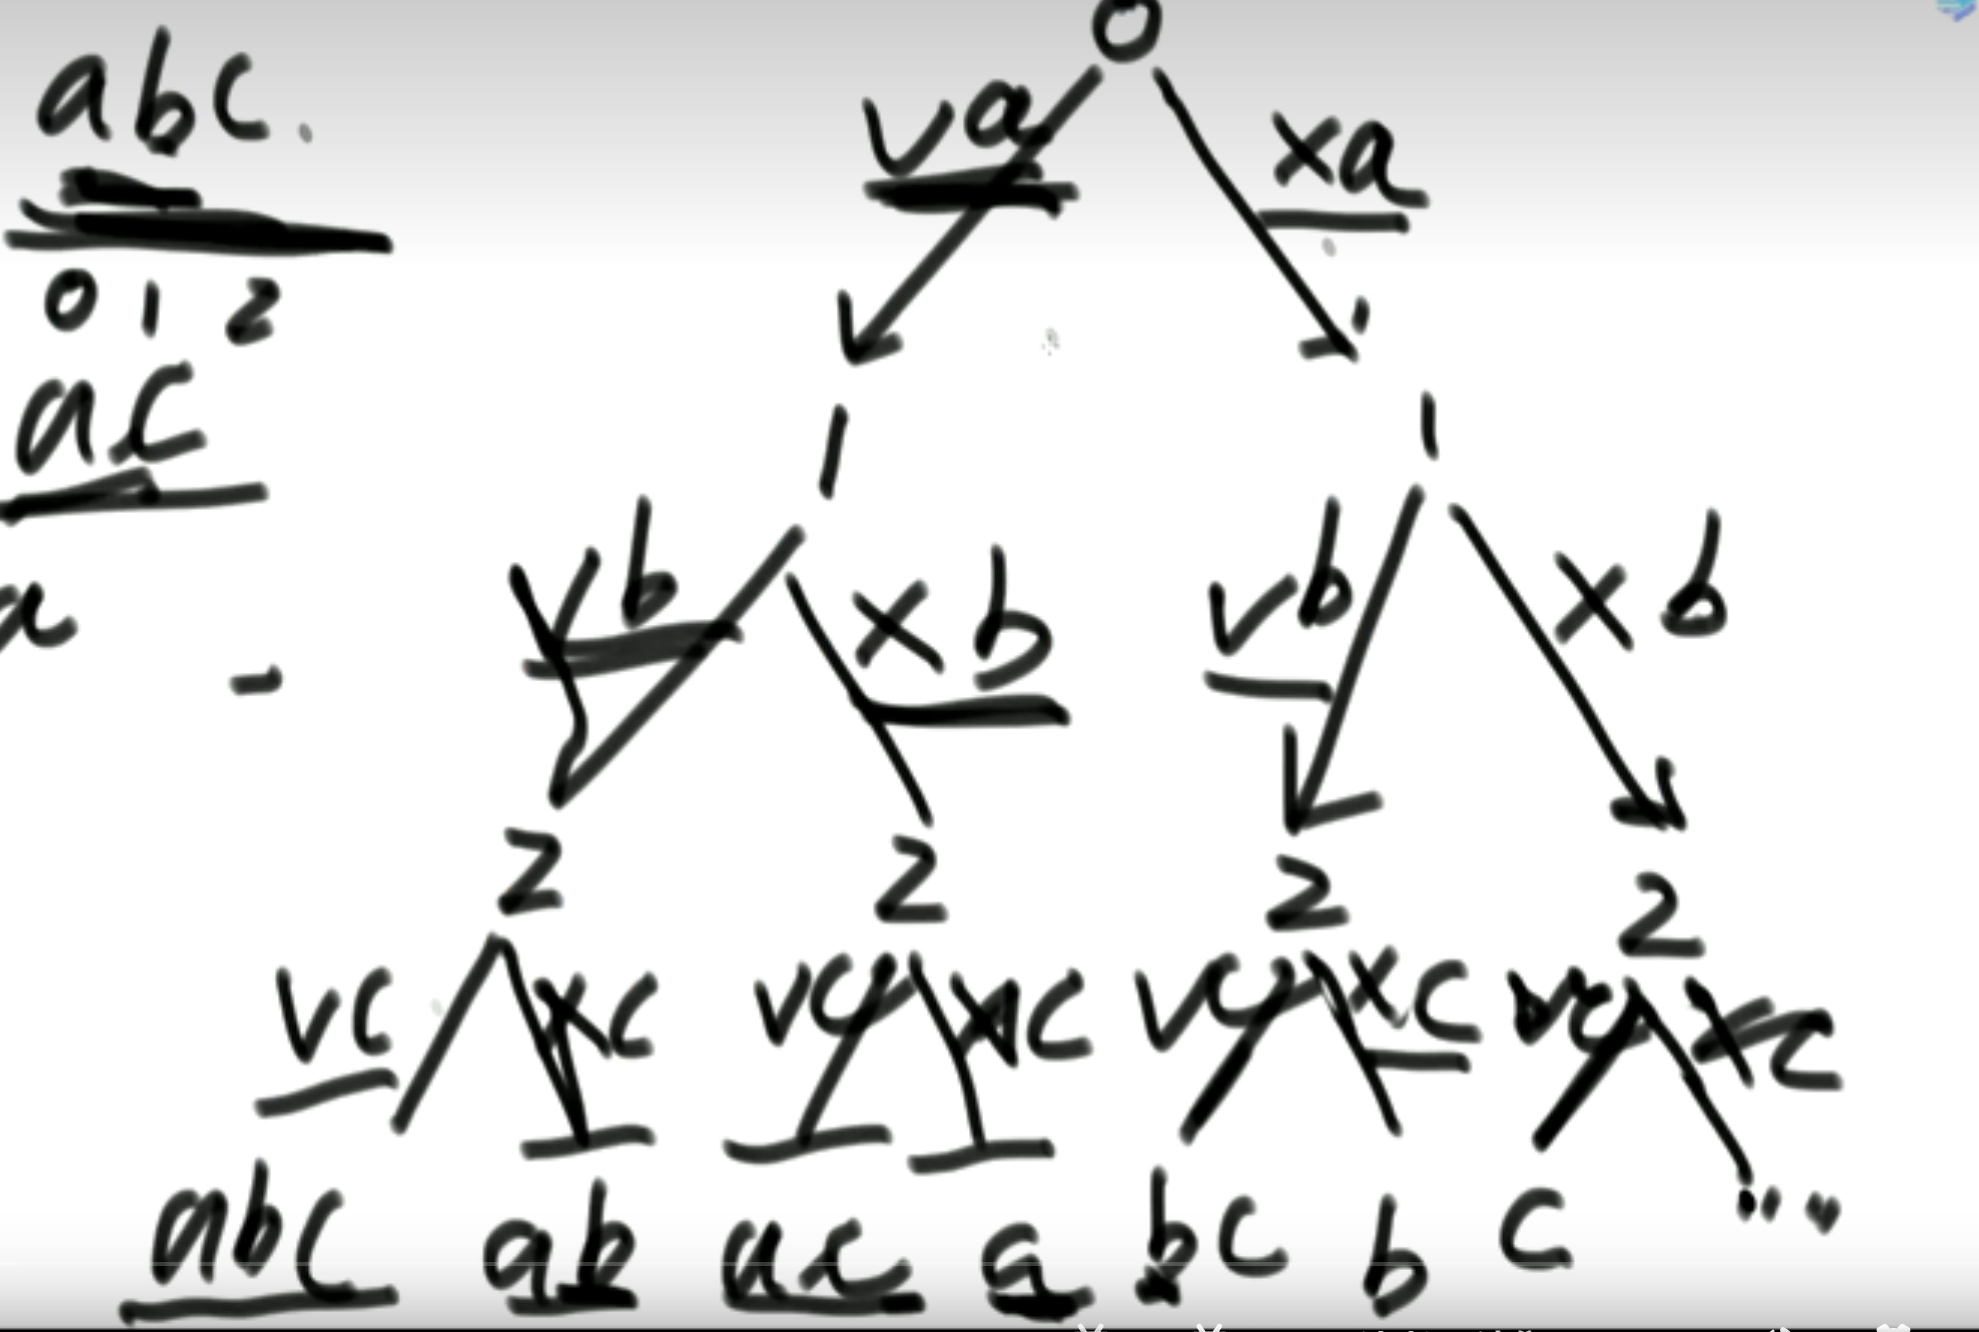 0
abc.
va xa
0 1 2
ac
1 1
vb xb vb xb
a
-
2 2 2 2
vc xc vc xc vc xc vc xc
abc ab ac a bc b c ""